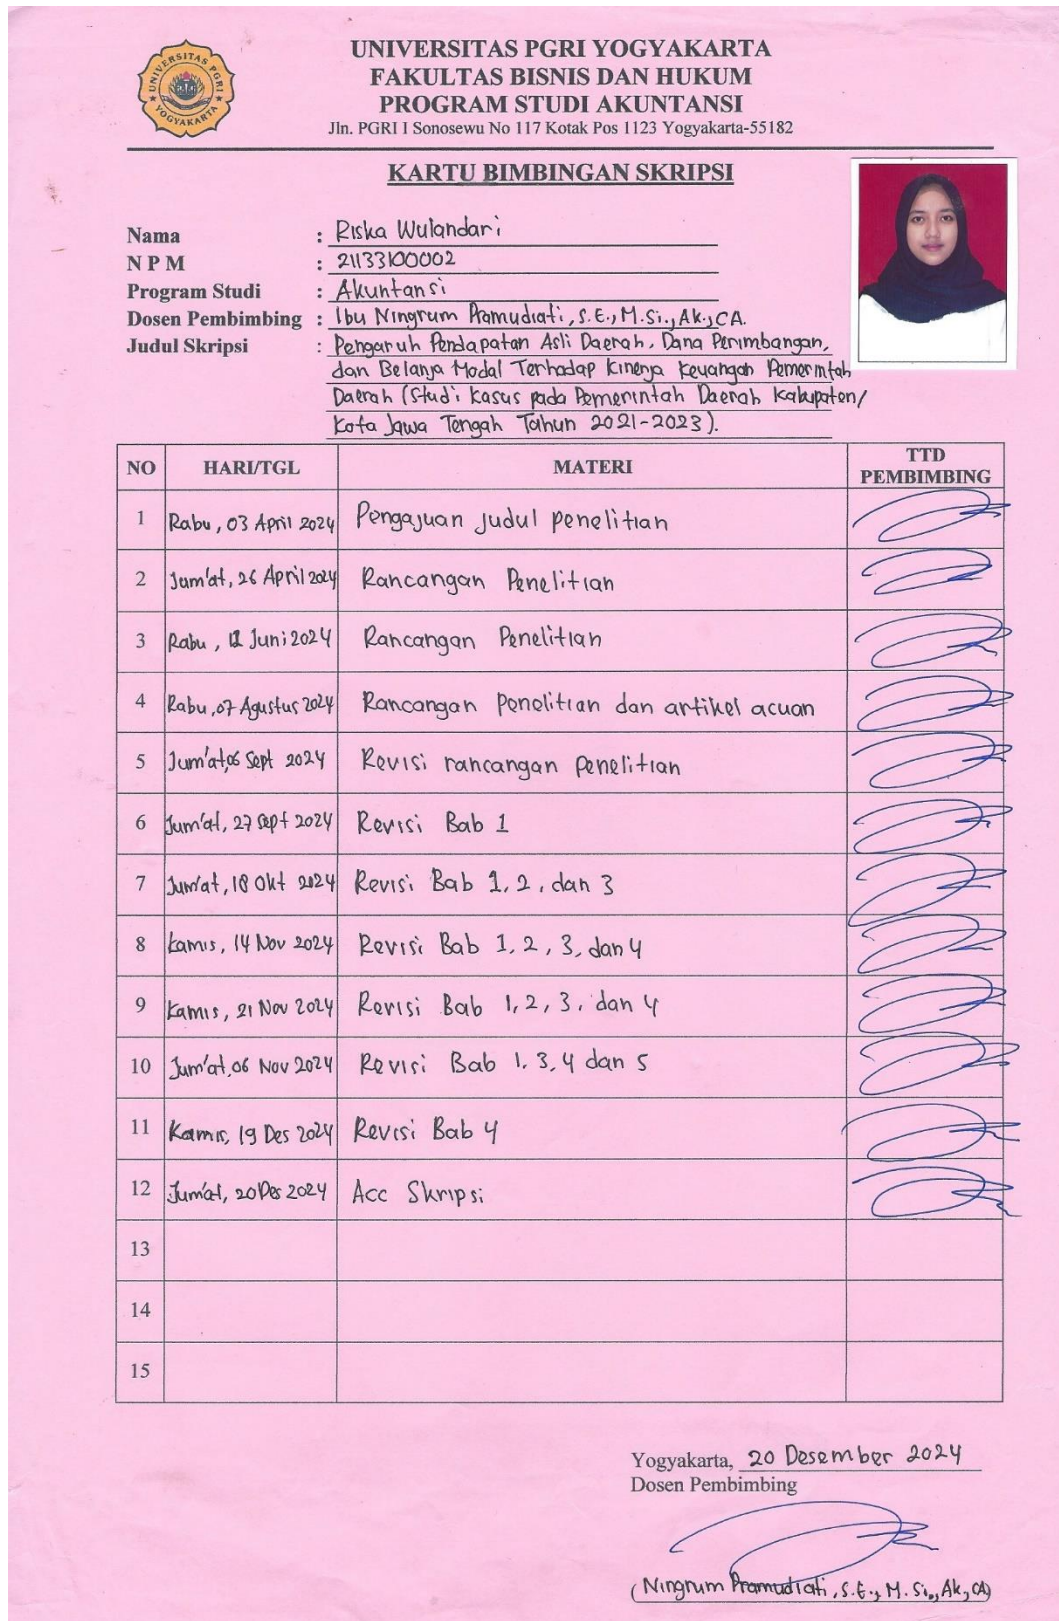 UNIVERSITAS PGRI YOGYAKARTA
UNIVERSITAS PGRI YOGYAKARTA
FAKULTAS BISNIS DAN HUKUM
PROGRAM STUDI AKUNTANSI
Jln. PGRI I Sonosewu No 117 Kotak Pos 1123 Yogyakarta-55182
KARTU BIMBINGAN SKRIPSI
Nama : Riska Wulandari
N P M : 21133100002
Program Studi : Akuntansi
Dosen Pembimbing : Ibu Ningrum Pramudiati, S.E., M.Si., Ak., CA.
Judul Skripsi : Pengaruh Pendapatan Asli Daerah, Dana Perimbangan,
dan Belanja Modal Terhadap Kinerja Keuangan Pemerintah
Daerah (Studi Kasus pada Pemerintah Daerah Kabupaten/
Kota Jawa Tengah Tahun 2021-2023).
NO HARI/TGL MATERI TTD PEMBIMBING
1 Rabu, 03 April 2024 Pengajuan judul penelitian
2 Jum'at, 26 April 2024 Rancangan Penelitian
3 Rabu, 12 Juni 2024 Rancangan Penelitian
4 Rabu, 07 Agustus 2024 Rancangan Penelitian dan artikel acuan
5 Jum'at, 06 Sept 2024 Revisi rancangan penelitian
6 Jum'at, 27 Sept 2024 Revisi Bab 1
7 Jum'at, 18 Okt 2024 Revisi Bab 1, 2, dan 3
8 Kamis, 14 Nov 2024 Revisi Bab 1, 2, 3, dan 4
9 Kamis, 21 Nov 2024 Revisi Bab 1, 2, 3, dan 4
10 Jum'at, 06 Nov 2024 Revisi Bab 1, 3, 4 dan 5
11 Kamis, 19 Des 2024 Revisi Bab 4
12 Jum'at, 20 Des 2024 Acc Skripsi
13
14
15
Yogyakarta, 20 Desember 2024
Dosen Pembimbing
(Ningrum Pramudiati, S.E., M.Si., Ak, CA)